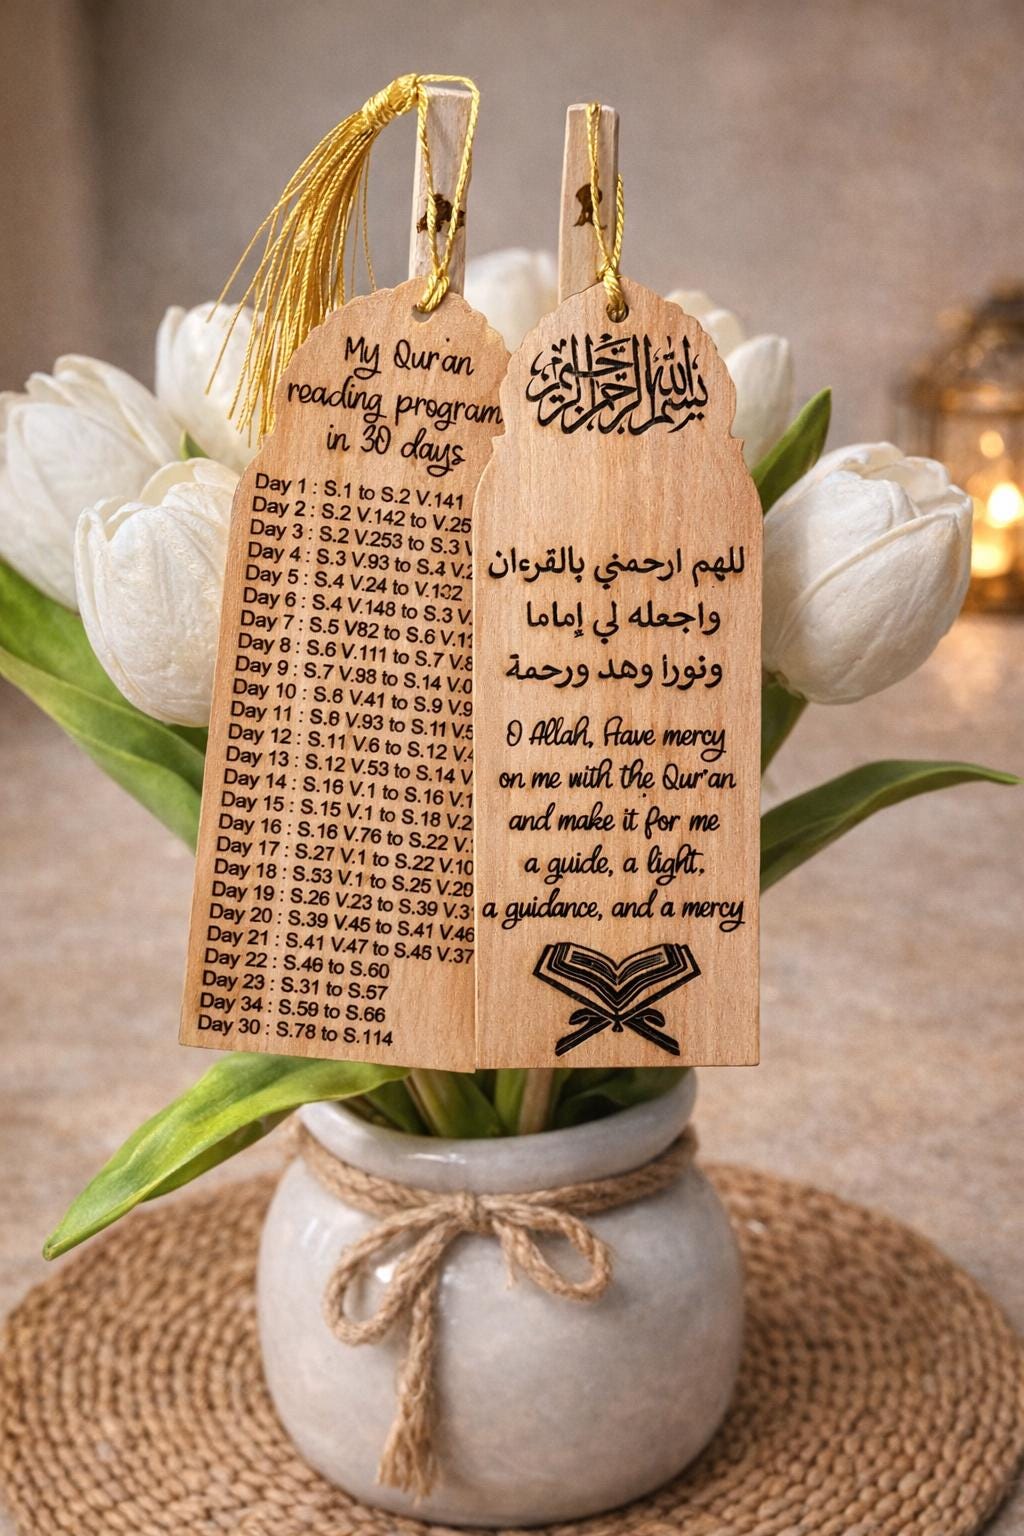 My Qur'an
reading program
in 30 days
Day 1 : S.1 to S.2 V.141
Day 2 : S.2 V.142 to V.25
Day 3 : S.2 V.253 to S.3 V
Day 4 : S.3 V.93 to S.4 V.2
Day 5 : S.4 V.24 to V.132
Day 6 : S.4 V.148 to S.3 V.
Day 7 : S.5 V82 to S.6 V.11
Day 8 : S.6 V.111 to S.7 V.8
Day 9 : S.7 V.98 to S.14 V.0
Day 10 : S.8 V.41 to S.9 V.9
Day 11 : S.8 V.93 to S.11 V.5
Day 12 : S.11 V.6 to S.12 V.4
Day 13 : S.12 V.53 to S.14 V
Day 14 : S.16 V.1 to S.16 V.1
Day 15 : S.15 V.1 to S.18 V.2
Day 16 : S.16 V.76 to S.22 V.
Day 17 : S.27 V.1 to S.22 V.10
Day 18 : S.53 V.1 to S.25 V.20
Day 19 : S.26 V.23 to S.39 V.3
Day 20 : S.39 V.45 to S.41 V.46
Day 21 : S.41 V.47 to S.45 V.37
Day 22 : S.46 to S.60
Day 23 : S.31 to S.57
Day 34 : S.59 to S.66
Day 30 : S.78 to S.114
بسم الله الرحمن الرحيم
للهم ارحمني بالقرءان
واجعله لي إماما
ونورا وهد ورحمة
O Allah, Have mercy
on me with the Qur'an
and make it for me
a guide, a light,
a guidance, and a mercy